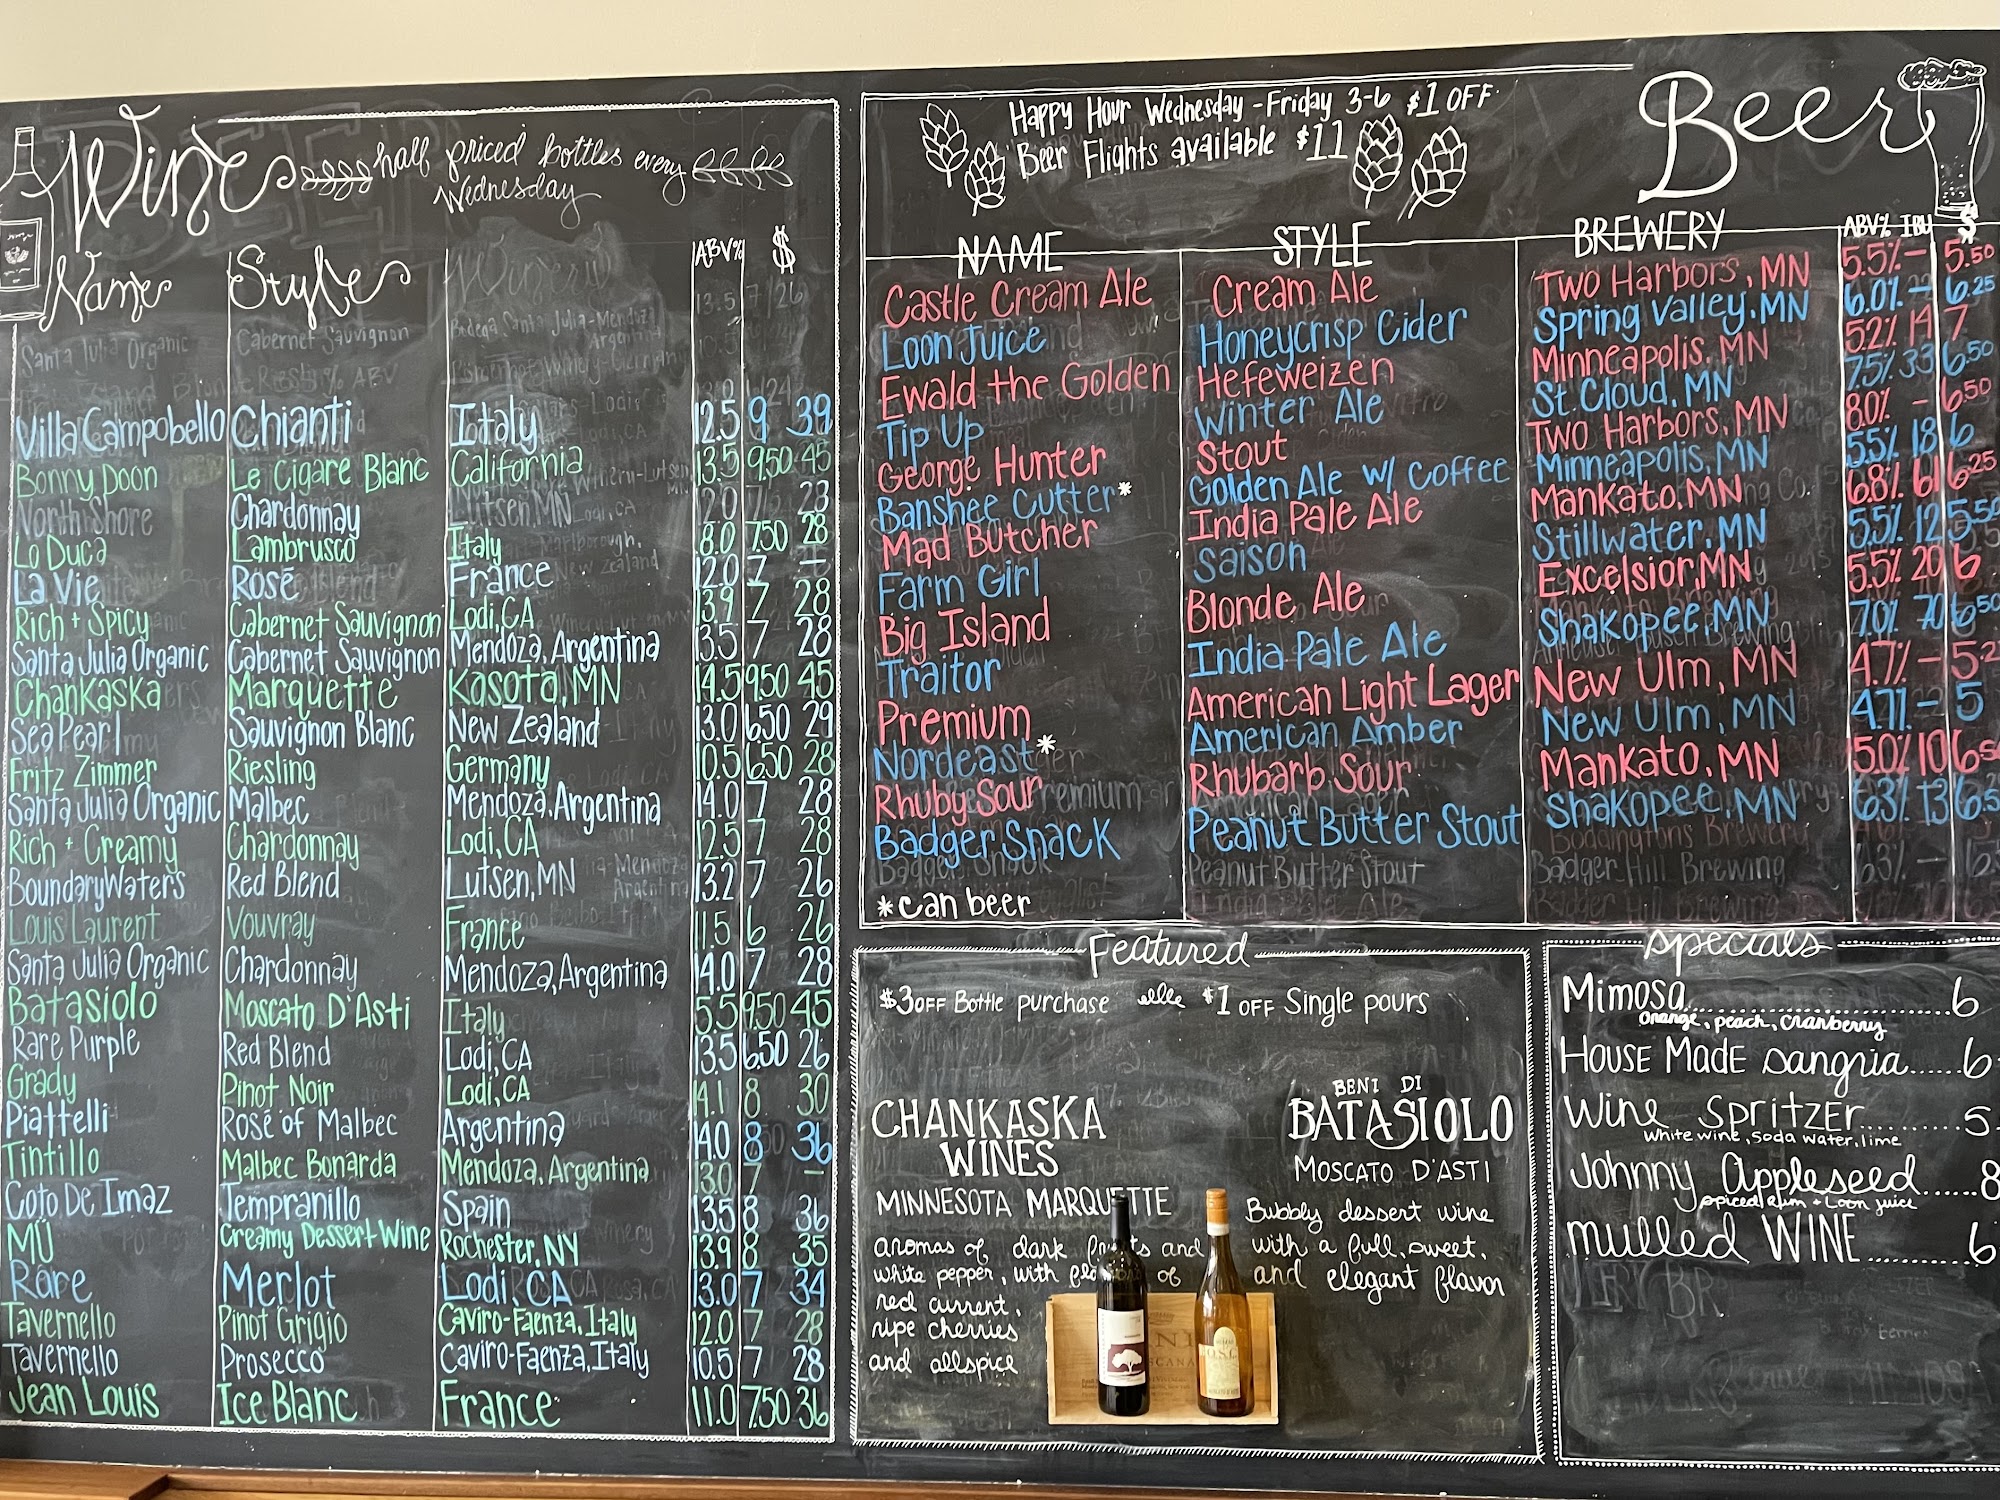 Wine
half priced bottles every
Wednesday
Name Style Winery ABV% $
Santa Julia Organic Cabernet Sauvignon Bodega Santa Julia-Mendoza Argentina 13.5 7/26
Villa Campobello Chianti Italy 12.5 9 39
Bonny Doon Le Cigare Blanc California 13.5 9.50 45
North Shore Chardonnay Lutsen, MN 12.0 7 23
Lo Duca Lambrusco Italy 8.0 7.50 28
La Vie Rosé France 12.0 7 -
Rich + Spicy Cabernet Sauvignon Lodi, CA 13.9 7 28
Santa Julia Organic Cabernet Sauvignon Mendoza, Argentina 13.5 7 28
Chankaska Marquette Kasota, MN 14.5 9.50 45
Sea Pearl Sauvignon Blanc New Zealand 13.0 6.50 29
Fritz Zimmer Riesling Germany 10.5 6.50 28
Santa Julia Organic Malbec Mendoza, Argentina 14.0 7 28
Rich + Creamy Chardonnay Lodi, CA 12.5 7 28
Boundary Waters Red Blend Lutsen, MN 13.2 7 26
Louis Laurent Vouvray France 11.5 6 26
Santa Julia Organic Chardonnay Mendoza, Argentina 14.0 7 28
Batasiolo Moscato D'Asti Italy 5.5 9.50 45
Rare Purple Red Blend Lodi, CA 13.5 6.50 26
Grady Pinot Noir Lodi, CA 14.1 8 30
Piattelli Rosé of Malbec Argentina 14.0 8 36
Tintillo Malbec Bonarda Mendoza, Argentina 13.0 7 -
Coto De Imaz Tempranillo Spain 13.5 8 36
MÜ Creamy Dessert Wine Rochester, NY 13.9 8 35
Rare Merlot Lodi, CA 13.0 7 34
Tavernello Pinot Grigio Caviro-Faenza, Italy 12.0 7 28
Tavernello Prosecco Caviro-Faenza, Italy 10.5 7 28
Jean Louis Ice Blanc France 11.0 7.50 36
Happy Hour Wednesday - Friday 3-6 $1 OFF
Beer Flights available $11
Beer
NAME STYLE BREWERY ABV% IBU $
Castle Cream Ale Cream Ale Two Harbors, MN 5.5% - 5.50
Loon Juice Honeycrisp Cider Spring Valley, MN 6.0% - 6.25
Ewald the Golden Hefeweizen Minneapolis, MN 5.2% 14 7
Tip Up Winter Ale St. Cloud, MN 7.5% 33 6.50
George Hunter Stout Two Harbors, MN 8.0% - 6.50
Banshee Cutter* Golden Ale w/ Coffee Minneapolis, MN 5.5% 18 6
Mad Butcher India Pale Ale Mankato, MN 6.8% 61 6.25
Farm Girl Saison Stillwater, MN 5.5% 12 5.50
Big Island Blonde Ale Excelsior, MN 5.5% 20 6
Traitor India Pale Ale Shakopee, MN 7.0% 70 6.50
Premium American Light Lager New Ulm, MN 4.7% - 5.2
Nordeast* American Amber New Ulm, MN 4.7% - 5
Rhuby Sour Rhubarb Sour Mankato, MN 5.0% 10 6.5
Badger Snack Peanut Butter Stout Shakopee, MN 6.3% 13 6.5
Peanut Butter Stout Badger Hill Brewing 6.3% -
*can beer
Featured
$3 OFF Bottle purchase $1 OFF Single pours
CHANKASKA
WINES
MINNESOTA MARQUETTE
aromas of dark fruits and
white pepper, with of
red currant,
ripe cherries
and allspice
BENI DI
BATASIOLO
MOSCATO D'ASTI
Bubbly dessert wine
with a full, sweet,
and elegant flavor
Specials
Mimosa..........6
orange, peach, cranberry
House Made sangria......6
Wine Spritzer..........5
white wine, soda water, lime
Johnny Appleseed......8
spiced rum + Loon juice
mulled WINE..........6